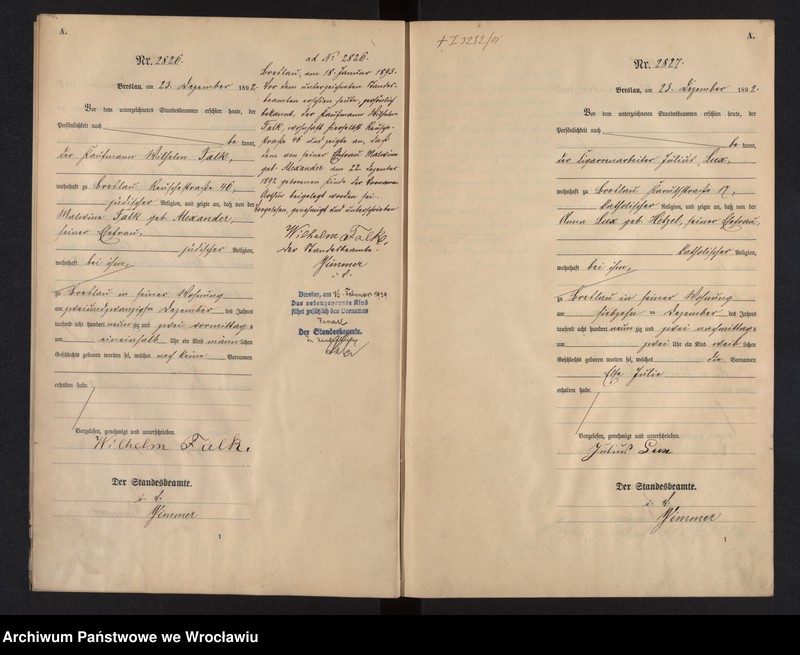 A.
Nr. 2826.
Breslau, am 23. Dezember 1892.
Vor dem unterzeichneten Standesbeamten erschien heute, der
Persönlichkeit nach
be kannt,
der Kaufmann Wilhelm Falk,
wohnhaft zu Breslau Reuschestraße 46,
jüdischer Religion, und zeigte an, daß von der
Malwine Falk geb. Alexander,
seiner Ehefrau,
jüdischer Religion,
wohnhaft bei ihm,
zu Breslau in seiner Wohnung
am zweiundzwanzigsten Dezember des Jahres
tausend acht hundert neun zig und zwei vormittags
um eineinhalb Uhr ein Kind männlichen
Geschlechts geboren worden sei, welches noch keine Vornamen
erhalten habe.
Vorgelesen, genehmigt und unterschrieben.
Wilhelm Falk.
Der Standesbeamte.
i. V.
Zimmer
1
ad No 2826.
Breslau, am 18. Januar 1893.
Vor dem unterzeichneten Standes-
beamten erschien heute, persönlich
bekannt, der Kaufmann Wilhelm
Falk, wohnhaft hierselbst Reusche-
straße 46 und zeigte an, daß
dem von seiner Ehefrau Malwine
geb. Alexander am 22. Dezember
1892 geborenen Kinde der Vorname
Arthur beigelegt worden sei.
Vorgelesen, genehmigt und unterschrieben
Wilhelm Falk.
Der Standesbeamte.
Zimmer
i. V.
Breslau, am 16. Februar 1939
Das nebengenannte Kind
führt zusätzlich den Vornamen
Israel
Der Standesbeamte.
+ I 3282/01
A.
Nr. 2827.
Breslau, am 23. Dezember 1892.
Vor dem unterzeichneten Standesbeamten erschien heute, der
Persönlichkeit nach
be kannt,
der Cigarrenarbeiter Julius Lux,
wohnhaft zu Breslau 17,
katholischer Religion, und zeigte an, daß von der
Anna Lux geb. Hetzel, seiner Ehefrau,
katholischer Religion,
wohnhaft bei ihm,
zu Breslau in seiner Wohnung
am siebzehnten Dezember des Jahres
tausend acht hundert neun zig und zwei nachmittags
um zwei Uhr ein Kind weib lichen
Geschlechts geboren worden sei, welches die Vornamen
Else Julie
erhalten habe.
Vorgelesen, genehmigt und unterschrieben.
Julius Lux
Der Standesbeamte.
i. V.
Zimmer
1
Archiwum Państwowe we Wrocławiu